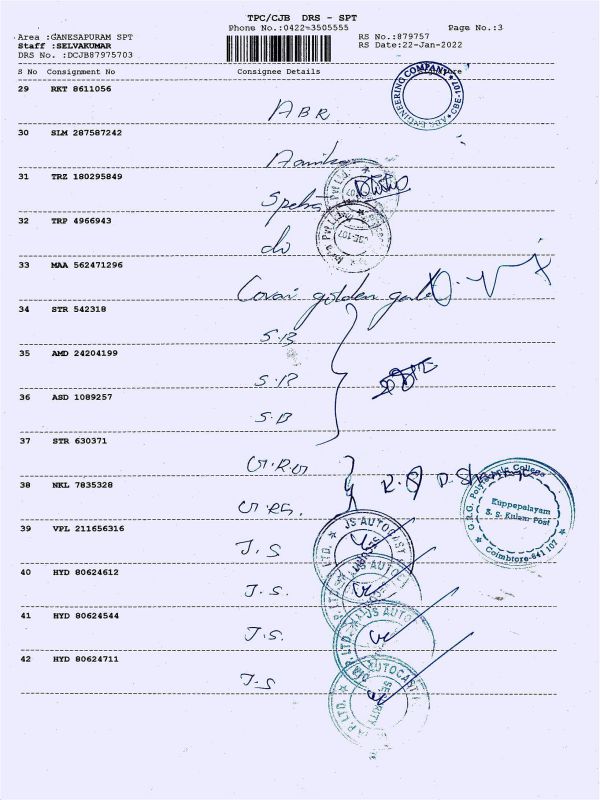 TPC/CJB DRS - SPT
Phone No.:0422-3505555 Page No.:3
Area :GANESAPURAM SPT RS No.:879757
Staff :SELVAKUMAR RS Date:22-Jan-2022
DRS No. :DCJB87975703
S No Consignment No Consignee Details
29 RKT 8611056
ABR
ABS ENGINEERING COMPANY CBE-107
30 SLM 287587242
31 TRZ 180295849
32 TRP 4966943
do
33 MAA 562471296
Covai golden gate
34 STR 542318
S.B
35 AMD 24204199
36 ASD 1089257
S.B
37 STR 630371
38 NKL 7835328
G.R.G. Polytechnic College
Kuppepalayam
S. S. Kulam Post
Coimbatore-641 107
39 VPL 211656316
J.S
JS AUTOCAST
40 HYD 80624612
J.S.
JS AUTO
41 HYD 80624544
J.S.
JS AUTO
P. LTD.
42 HYD 80624711
J.S
AUTOCAST
SECURITY
P. LTD.